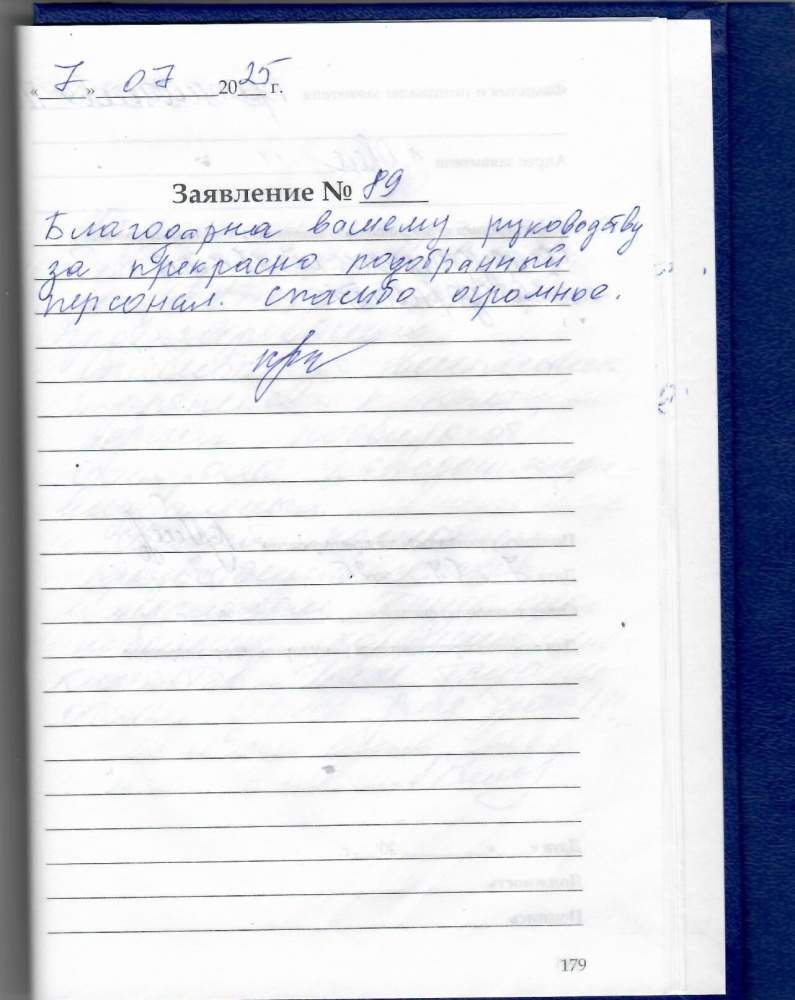 «7» 07 2025 г.
Заявление № 89
Благодарна вашему руководству
за прекрасно подобранный
персонал. Спасибо огромное.
179